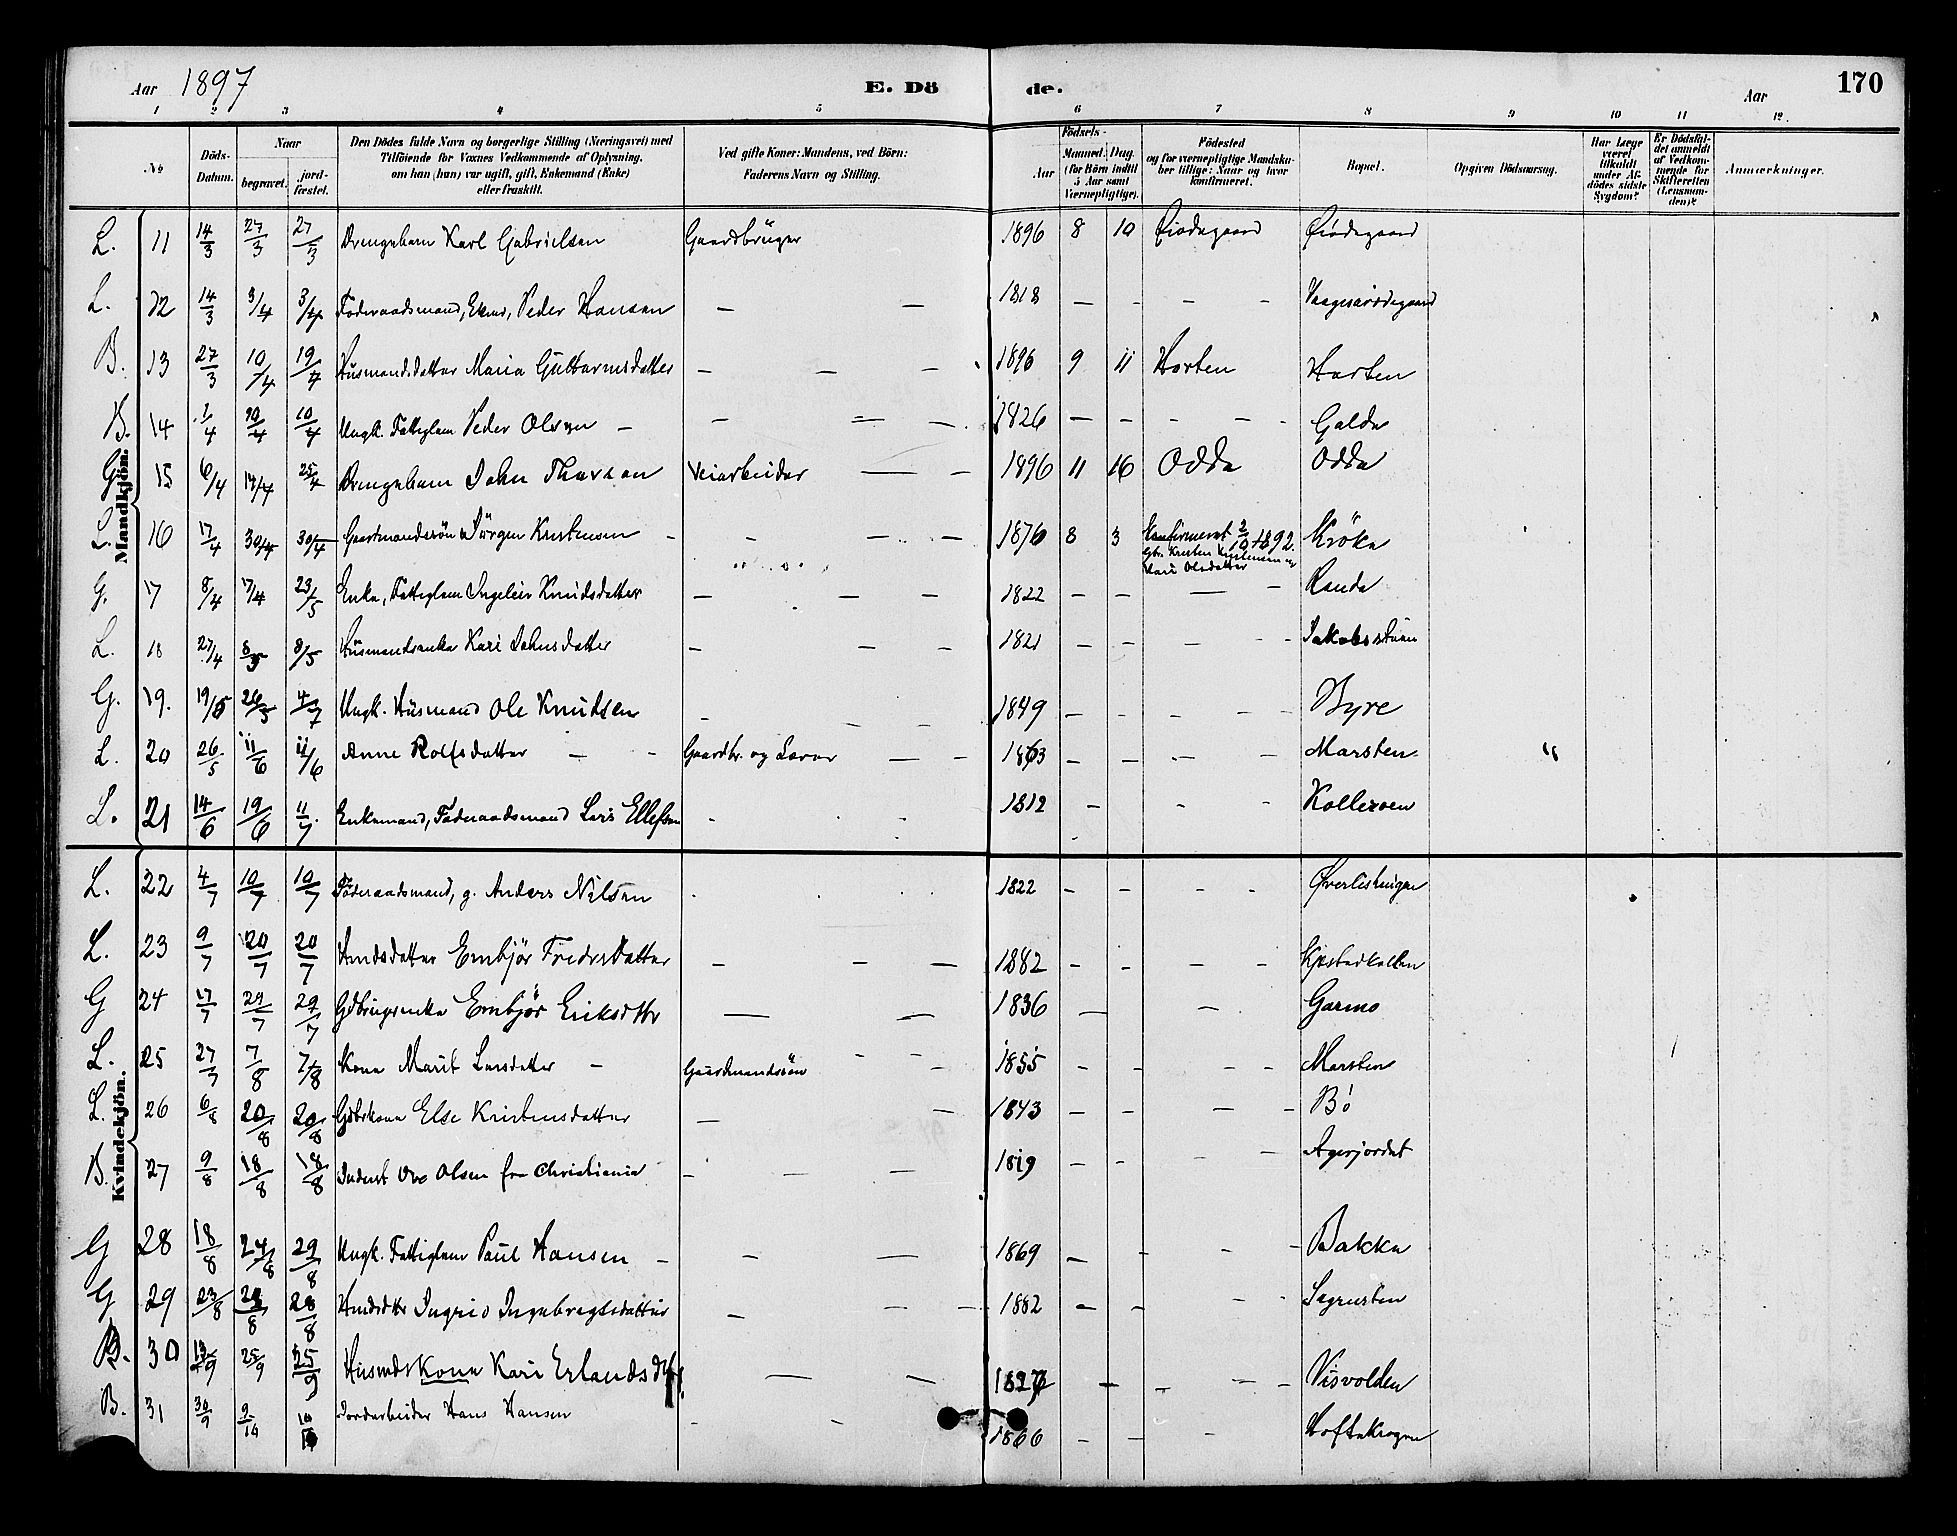 Aar 1897 E. Dö de. Aar 170
1 2 3 4 5 6 7 8 9 10 11 12.
No Döds-Datum. Naar begravet. jord-fæstet. Den Dödes fulde Navn og borgerlige Stilling (Næringsvei) med Tilföiende for Voxnes Vedkommende af Oplysning, om han (hun) var ugift, gift, Enkemand (Enke) eller fraskilt. Ved gifte Koner: Mandens, ved Börn: Faderens Navn og Stilling. Födsels- Aar Maaned. Dag. (for Börn indtil 5 Aar samt Værnepligtige). Födested og for værnepligtige Mandska-ber tillige: Naar og hvor konfirmeret. Bopæl. Opgiven Dödsaarsag. Har Læge været tilkaldt under Af-dödes sidste Sygdom? Er Dödsfal-det anmeldt af Vedkom-mende for Skifteretten (Lensman-den)? Anmærkninger.
Mandkjön.
L. 11 14/3 27/3 27/3 Drengebarn Karl Gabrielsen Gaardbruger 1896 8 10
L. 12 14/3 3/4 3/4 Föderaadsmand, Ekmd, Peder Hansen — — 1818 — - - -
B. 13 27/3 10/4 19/4 Husmandsdatter Maria Guttormsdatter — — — 1896 9 11 Horten Horten
B. 14 1/4 10/4 10/4 Ungk. Fattiglem Peder Olsen — — — — 1826 — - - - Galde
G 15 6/4 14/4 25/4 Drengebarn John Thorson Veiarbeider — — 1896 11 16 Odda Odda
L. 16 17/4 30/4 30/4 Gaardmandssön Jörgen Kristensen — - - - 1876 8 3 Konfirmeret 2/10 1892. Gbr. Kristen Kristensen og Mari Olsdatter Kröke
G. 17 8/4 17/4 23/5 Enke, Fattiglem Ingeleiv Knudsdatter — — — 1822 — - — - Randa
L. 18 27/4 8/5 8/5 Husmandsenke Kari Johnsdatter — — — 1821 - - - - Jakobsstuen
G. 19. 19/5 26/5 4/7 Ungk. Husmand Ole Knudsen - - - 1849 — - - - Byre
L. 20 26/5 11/6 11/6 Anne Rolfsdatter — - Gaardbr. og Lærer — - 1863 — - - - Marsten
L. 21 14/6 19/6 11/7 Enkemand, Föderaadsmand Lars Ellefsen 1812 - - -
Kvindekjön.
L. 22 4/7 10/7 10/7 Föderaadsmand, g. Anders Nilsen 1822 - - - -
L. 23 9/7 20/7 20/7 Hmdsdatter Embjör Fredrsdatter — — — 1882 - - - -
G 24 17/7 29/7 29/7 Gdbrugerenke Embjör Eriksdttr — — 1836 — — Garmo
L. 25 27/7 7/8 7/8 Kone Marit Larsdatter — Gaardmandssön - - — 1855 - - - - Marsten
L. 26 6/8 20/8 20/8 Gdbrkone Else Kristensdatter — — 1843 - - — - Bö
B. 27 9/8 18/8 18/8 Inderst Ove Olsen fra Christiania - — — 1819 - - - - Agerjordet
G 28 18/8 24/8 29/8 Ungk. Fattiglem Paul Hansen — - — 1869 — - - - Bakke
G 29 23/8 28/8 28/8 Hmdsdttr Ingrid Ingebregtsdatter — — — 1882 — - - -
B. 30 19/9 25/9 25/9 Husmdskone Kari Erlandsdttr. — — 1827 — - — - Visvolden
B. 31 30/9 9/10 10/10 Jordarbeider Hans Hansen - - 1866 - - - Hoftekrogen